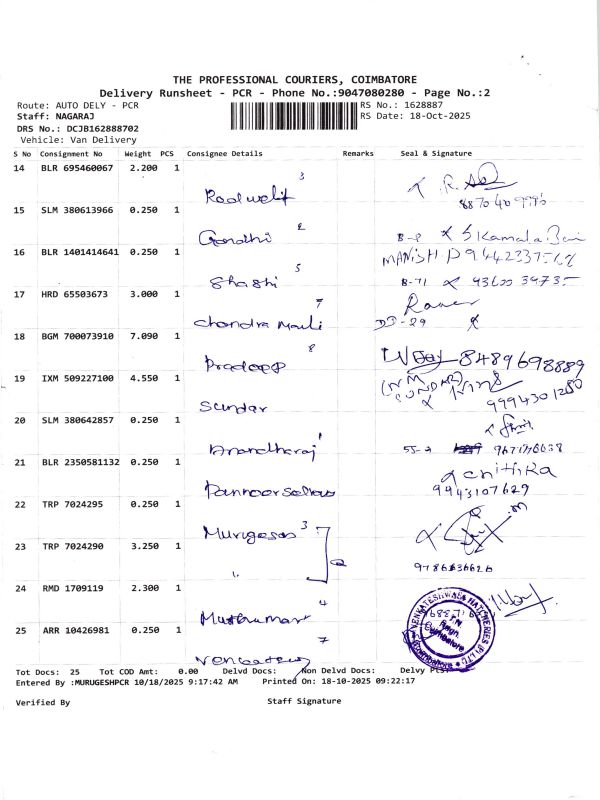 THE PROFESSIONAL COURIERS, COIMBATORE
Delivery Runsheet - PCR - Phone No.:9047080280 - Page No.:2
Route: AUTO DELY - PCR RS No.: 1628887
Staff: NAGARAJ RS Date: 18-Oct-2025
DRS No.: DCJB162888702
Vehicle: Van Delivery
S No Consignment No Weight PCS Consignee Details Remarks Seal & Signature
14 BLR 695460067 2.200 1
3
15 SLM 380613966 0.250 1
Gandhi 2 B-8 S Kamala Bai
16 BLR 1401414641 0.250 1 MANISH D 9442337568
Shashi 5 B-71
17 HRD 65503673 3.000 1
Chandra Mauli 7 D3-29
18 BGM 700073910 7.090 1
Pradeep 8 8489698889
19 IXM 509227100 4.550 1
Sundar 9994301280
20 SLM 380642857 0.250 1
Anandharaj 1
21 BLR 2350581132 0.250 1
9943107629
22 TRP 7024295 0.250 1
Murugesan 3
23 TRP 7024290 3.250 1
9786636626
24 RMD 1709119 2.300 1
Muthukumar 4
25 ARR 10426981 0.250 1
7
VENKATESHWARA HATCHERIES (P) LTD
Coimbatore
Tot Docs: 25 Tot COD Amt: 0.00 Delvd Docs: Non Delvd Docs: Delvy Pcs:
Entered By :MURUGESHPCR 10/18/2025 9:17:42 AM Printed On: 18-10-2025 09:22:17
Verified By Staff Signature